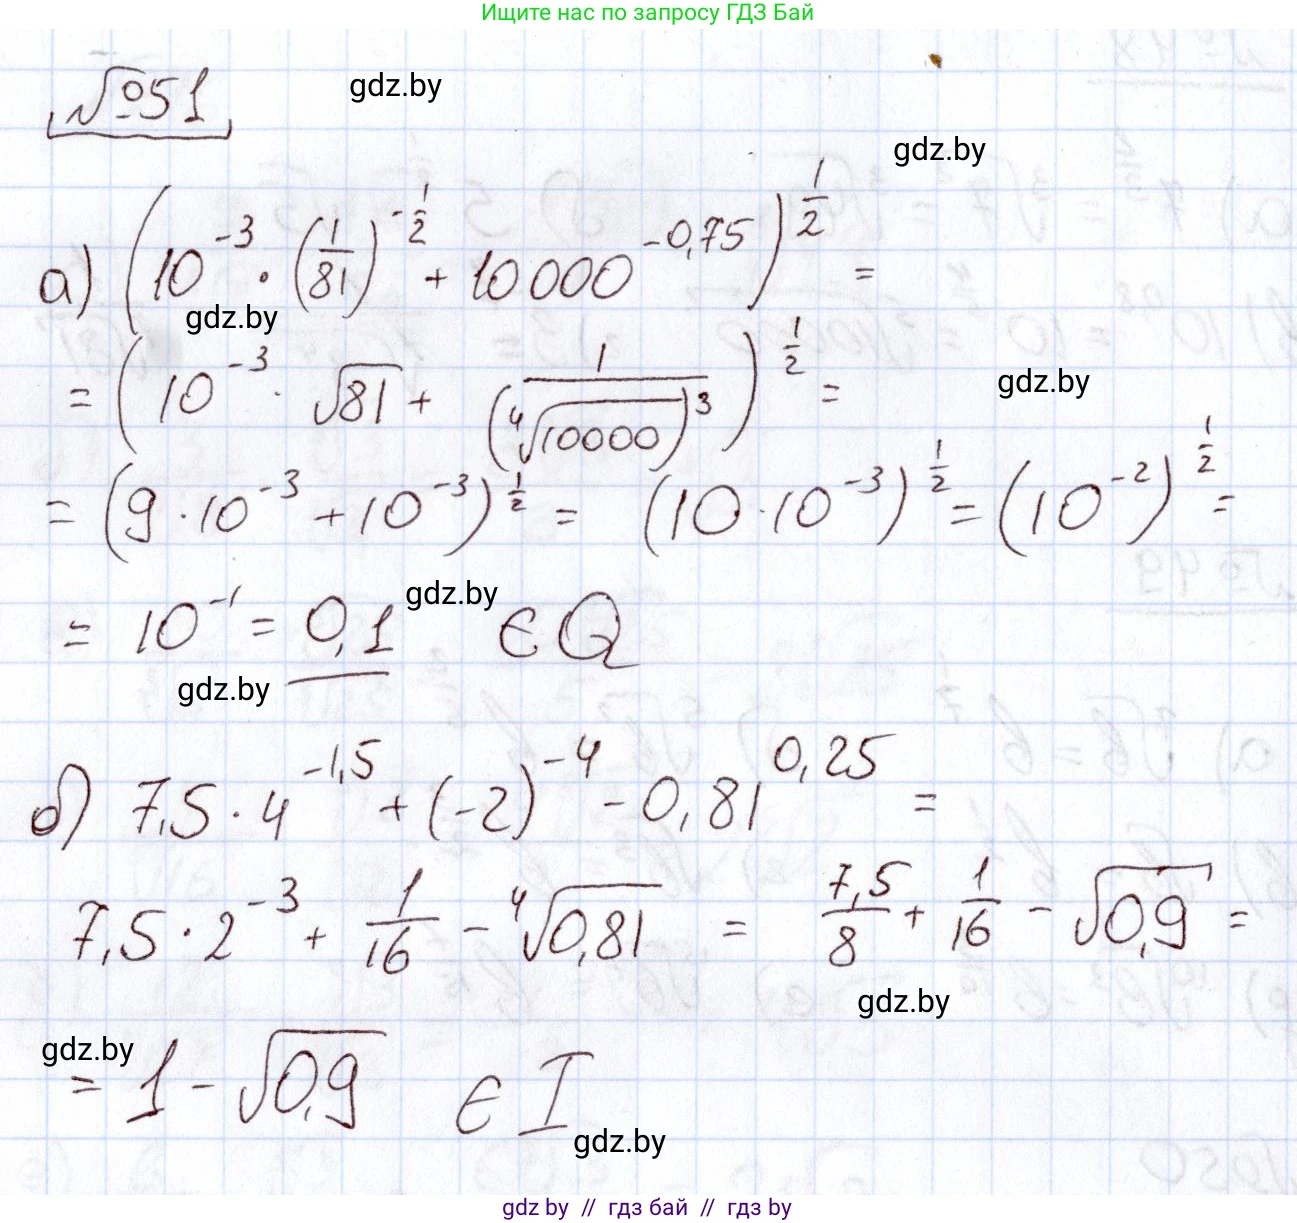 Ищите нас по запросу ГДЗ Бай
№51
gdz.by
gdz.by
а) (10^{-3} · (1/81)^{-1/2} + 10000^{-0,75})^{1/2} =
gdz.by
= (10^{-3} · √81 + 1/(⁴√10000)^3)^{1/2} =
gdz.by
= (9 · 10^{-3} + 10^{-3})^{1/2} = (10 · 10^{-3})^{1/2} = (10^{-2})^{1/2} =
= 10^{-1} = 0,1 ∈ Q
gdz.by
gdz.by
б) 7,5 · 4^{-1,5} + (-2)^{-4} - 0,81^{0,25} =
7,5 · 2^{-3} + 1/16 - ⁴√0,81 = 7,5/8 + 1/16 - √0,9 =
gdz.by
gdz.by
= 1 - √0,9 ∈ I
gdz.by
gdz by // гдз бай // гдз by